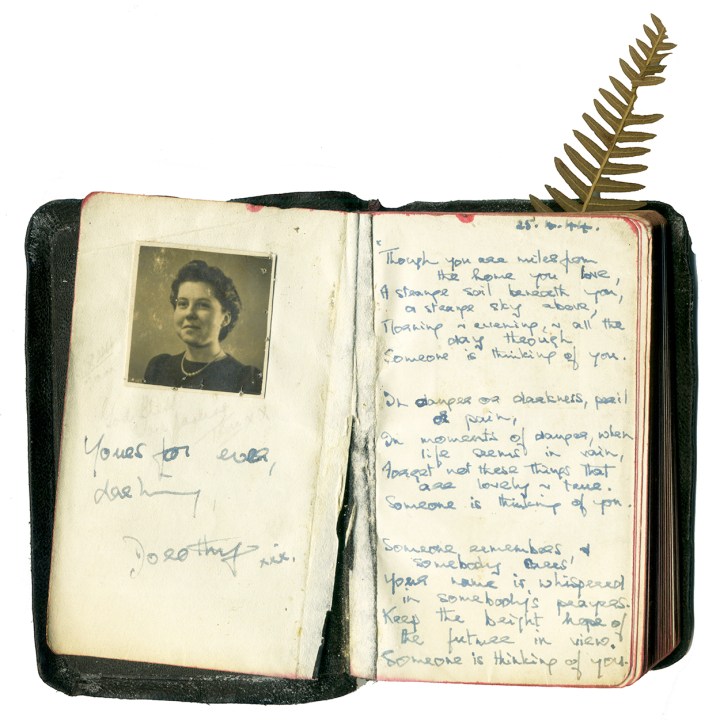 Yours for ever,
darling,
Dorothy xxx.
25.4.44.
"Though you are miles from
the home you love,
A strange soil beneath you,
a strange sky above,
Morning & evening, & all the
day through
Someone is thinking of you.
In danger or darkness, peril
or pain,
In moments of danger, when
life seems in vain,
Forget not these things that
are lovely & true.
Someone is thinking of you.
Someone remembers &
somebody cares!
Your name is whispered
in somebody's prayers.
Keep the bright hope of
the future in view."
Someone is thinking of you.